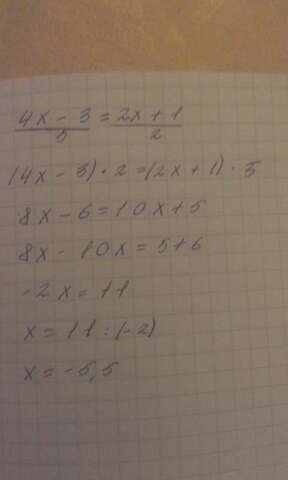 4x - 3 / 5 = 2x + 1 / 2
(4x - 3) · 2 = (2x + 1) · 5
8x - 6 = 10x + 5
8x - 10x = 5 + 6
-2x = 11
x = 11 : (-2)
x = -5,5